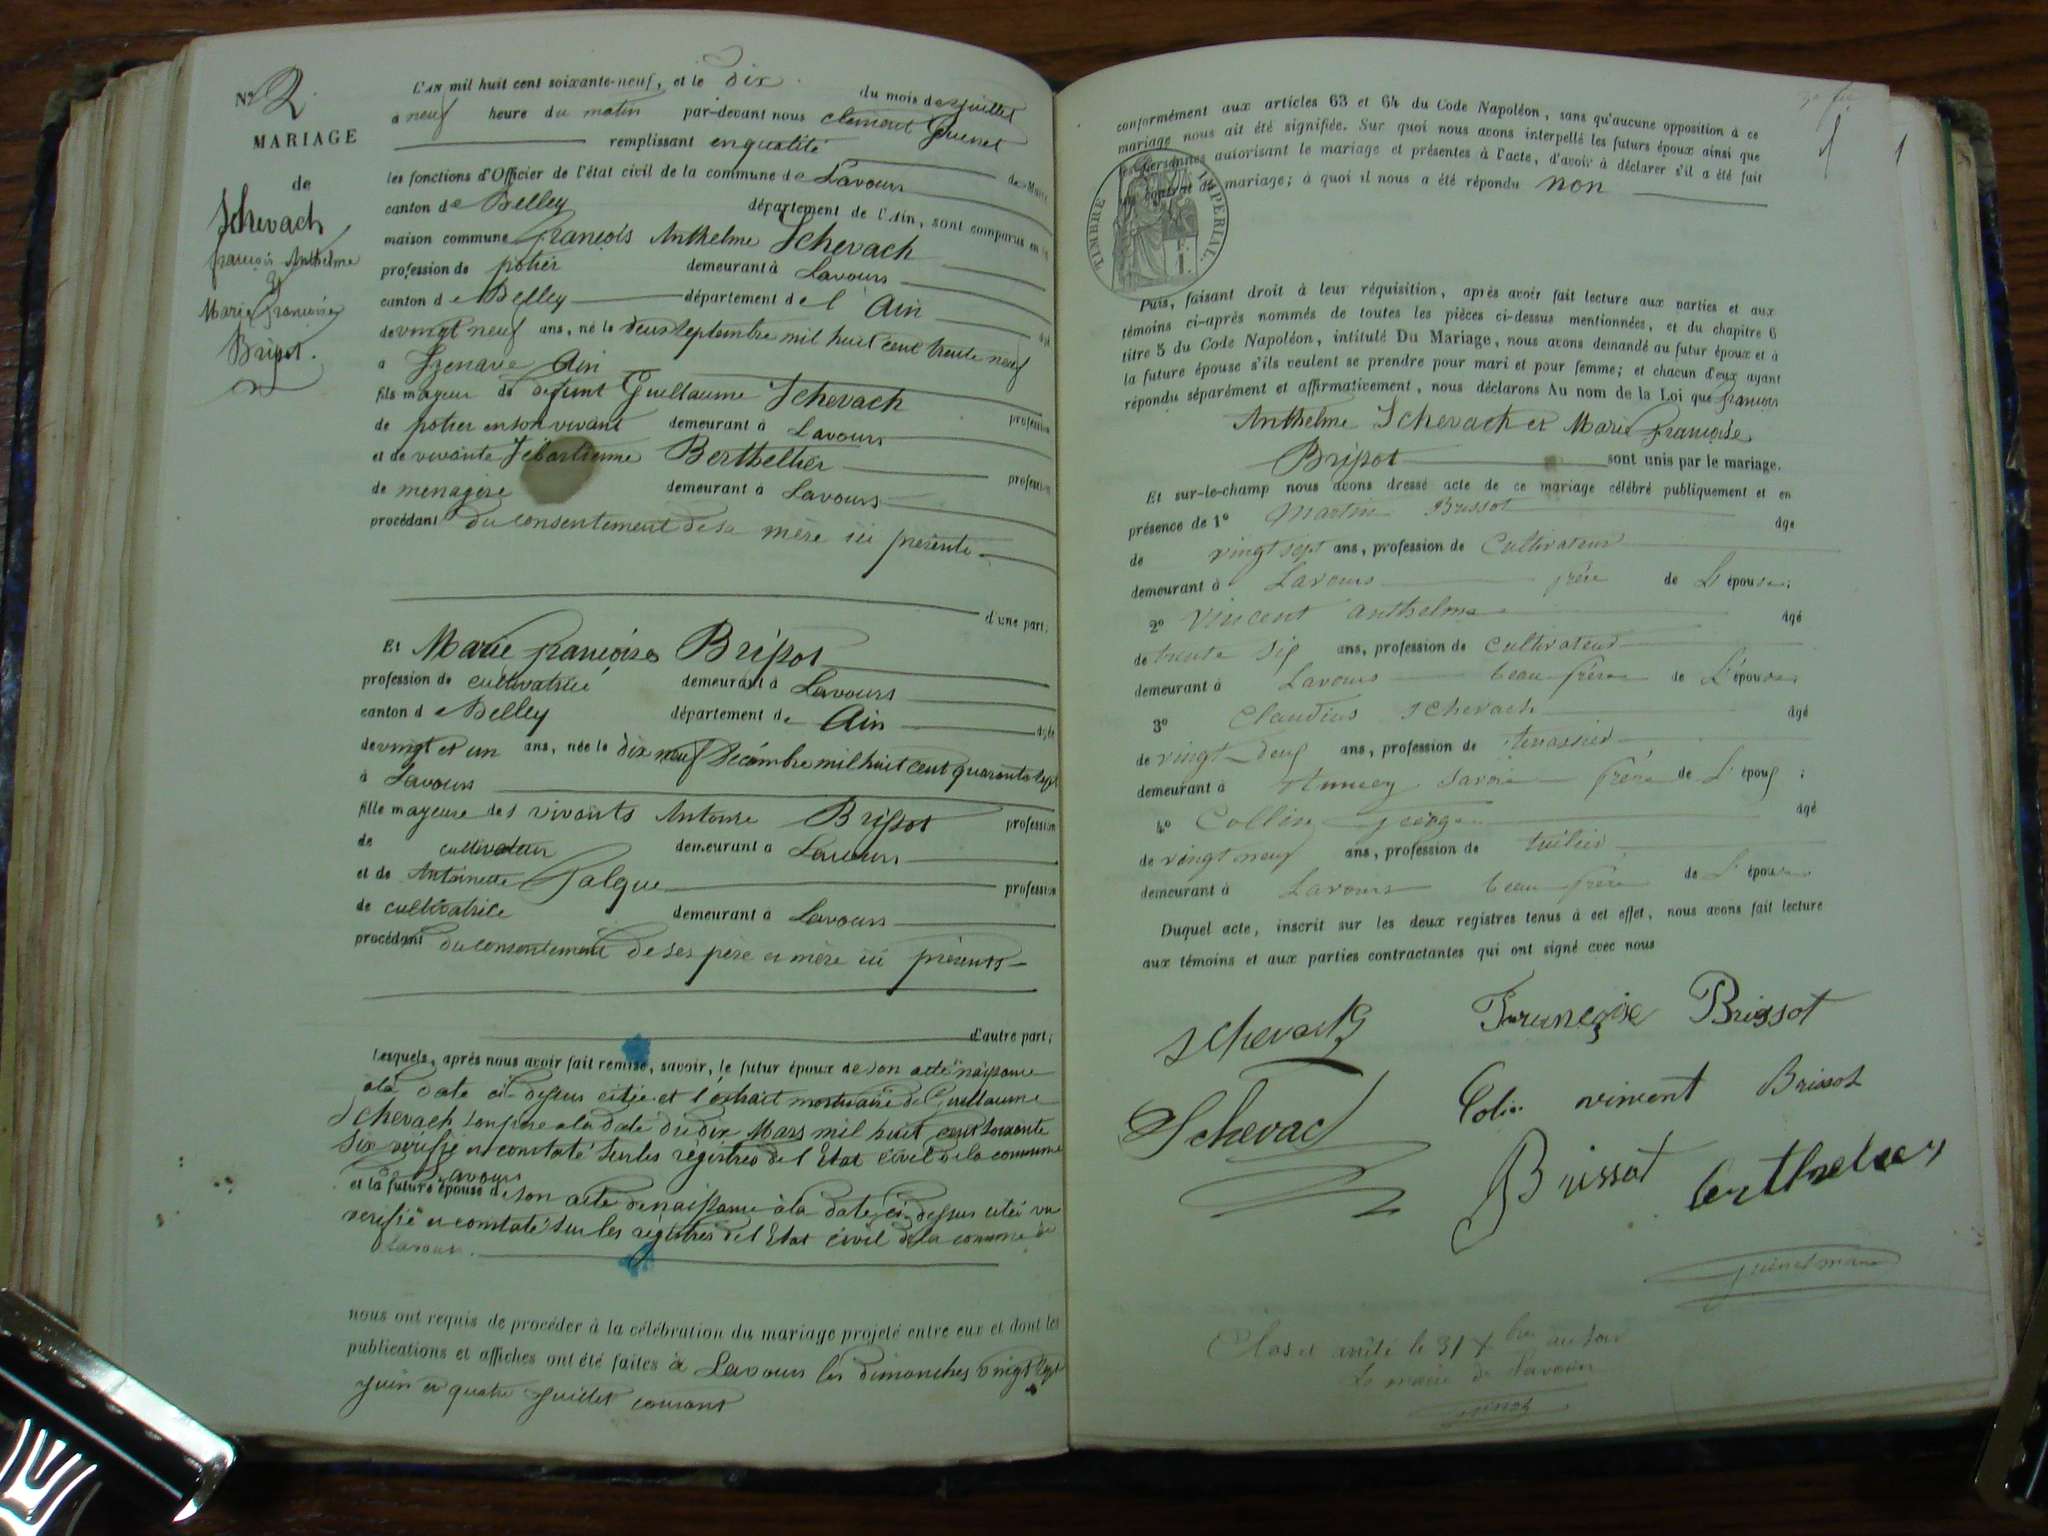 N° 2
MARIAGE
de
Schevach
françois Anthelme
et
Marie françoise
Brissot.
L'AN mil huit cent soixante-neuf, et le dix du mois de Juillet
a neuf heure du matin par-devant nous clement Guinet
remplissant en qualité de Maire
les fonctions d'Officier de l'état civil de la commune de Lavours
canton de Belley département de l'Ain, sont comparus en la
maison commune françois Anthelme Schevach
profession de potier demeurant à Lavours
canton de Belley département de l'Ain âgé
de vingt neuf ans, né le deux septembre mil huit cent trente neuf
à Izenave Ain
fils majeur de defunt Guillaume Schevach profession
de potier en son vivant demeurant à Lavours
et de vivante Sébastienne Berthellier profession
de menagère demeurant à Lavours
procédant du consentement de sa mère ici présente
d'une part;
Et Marie françoise Brissot
profession de cultivatrice demeurant à Lavours
canton de Belley département de Ain âgée
de vingt et un ans, née le dix neuf Décembre mil huit cent quarante sept
à Lavours
fille majeure des vivants Antoine Brissot profession
de cultivateur demeurant à Lavours
et de Antoinette Falque profession
de cultivatrice demeurant à Lavours
procédant du consentement de ses père et mère ici présents
d'autre part;
Lesquels, après nous avoir fait remise, savoir, le futur époux de son acte naissance
à la date ci-dessus citée et l'extrait mortuaire de Guillaume
Schevach son père a la date du dix Mars mil huit cent soixante
six vérifié et constaté sur les régistres de l'Etat civil de la commune
de Lavours
et la future épouse de son acte de naissance à la date ci-dessus citée vu
verifié et constaté sur les régistres de l'Etat civil de la commune de
Lavours.
nous ont requis de procéder à la célébration du mariage projeté entre eux et dont les
publications et affiches ont été faites à Lavours les dimanches vingt sept
Juin et quatre Juillet courant
1
conformément aux articles 63 et 64 du Code Napoléon, sans qu'aucune opposition à ce
mariage nous ait été signifiée. Sur quoi nous avons interpellé les futurs époux ainsi que
les personnes autorisant le mariage et présentes à l'acte, d'avoir à déclarer s'il a été fait
un contrat de mariage; à quoi il nous a été répondu non
TIMBRE IMPÉRIAL.
Puis, faisant droit à leur réquisition, après avoir fait lecture aux parties et aux
témoins ci-après nommés de toutes les pièces ci-dessus mentionnées, et du chapitre 6
titre 5 du Code Napoléon, intitulé Du Mariage, nous avons demandé au futur époux et à
la future épouse s'ils veulent se prendre pour mari et pour femme; et chacun d'eux ayant
répondu séparément et affirmativement, nous déclarons Au nom de la Loi que françois
Anthelme Schevach et Marie françoise
Brissot sont unis par le mariage.
Et sur-le-champ nous avons dressé acte de ce mariage célébré publiquement et en
présence de 1° Martin Brissot âge
de vingt sept ans, profession de Cultivateur
demeurant à Lavours frére de L'épouse;
2° Vincent anthelme âgé
de trente six ans, profession de cultivateur
demeurant à Lavours beau frére de L'épouse;
3° Claudius schevach âgé
de vingt deux ans, profession de terrassier
demeurant à Annecy Savoie frère de L'époux;
4° Collin George âgé
de vingt neuf ans, profession de tuilier
demeurant à Lavours beau frére de L'épouse
Duquel acte, inscrit sur les deux registres tenus à cet effet, nous avons fait lecture
aux témoins et aux parties contractantes qui ont signé avec nous
schevach Françoise Brissot
Schevach Colin vincent Brissot
Brissot berthelier
Guinet maire
Clos et arrêté le 31 Xbre au soir
Le maire de Lavours
Guinet